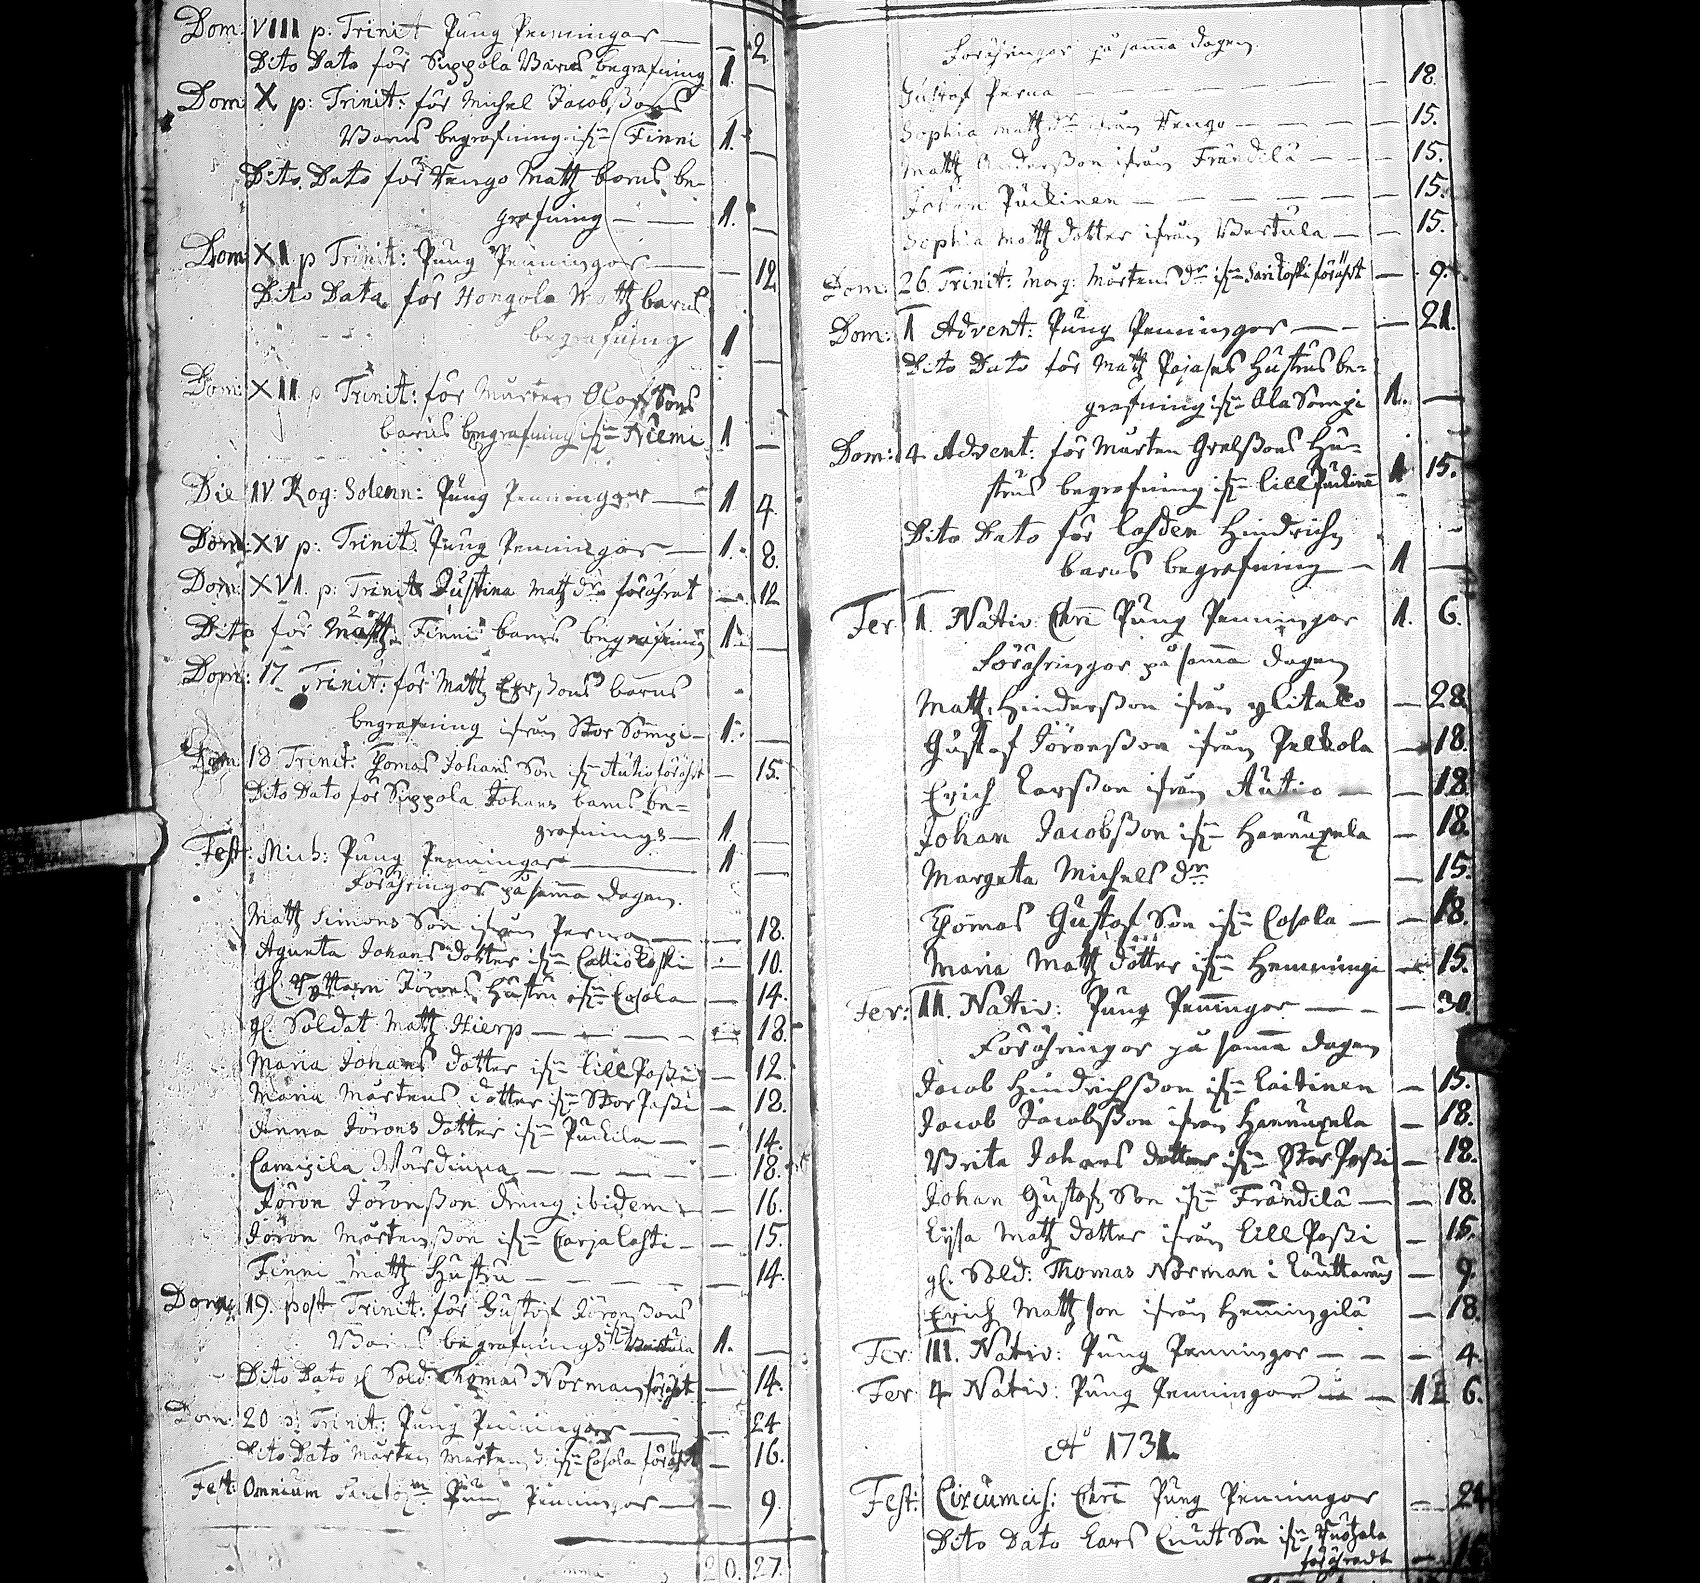 Dom: VIII p: Trinit Pung Penningar — — 2.
Dito Dato för Suppola Barns begrafning 1.
Dom: X p: Trinit: för Michel Jacobßons
Barns begrafning ifrn Finni 1. —
Dito Dato för Hengo Mattz barns be-
grafning — — 1. —
Dom XI p Trinit: Pung Penningar — — 12
Dito Dato för Hongola Mattz barns
begrafning 1 —
Dom: XII p Trinit: för Mårten Olofs Sons
barns begrafning ifrn Niemi 1 —
Die IV Rog: Solenn: Pung Penningar — 1 4.
Dom: XV p: Trinit: Pung Penningar — 1. 8.
Dom: XVI. p: Trinit: Justina Mattz dr förährat — 12
Dito för Mattz Finni barns begrafning 1. —
Dom: 17 Trinit: för Mattz Erßons barns
begrafning ifrån Stor Sompi — 1. —
Dom: 18 Trinit: Thomas Johans Son ifrn Autio förährt — 15.
Dito Dato för Suppola Johans barns be=
grafnings — 1. —
Fest: Mich: Pung Penningar — 1 —
Föräringar på samma dagen.
Mattz Simons Son ifrån Perna — — 18.
Agneta Johans dotter ifrn Calliokoski — 10.
gl. Jörens Hustru ifrn Cosola — 14.
gl. Soldat Mattz Hierp — — — 18.
Maria Johans dotter ifrn lill Poßi — 12.
Maria Mårtens dotter ifrn Stor Poßi — 18.
Anna Jörens dotter ifrn Puckila — — 14.
— — — — 18.
Jören Jörenßon dreng ibidem — — 16.
Jören Mårtenßon ifrn Carjalohti — — 15.
Finni Mattz Hustru — — — — 14.
Dom: 19. post Trinit: för Gustof Jörenßons
Barns begrafning 1. —
Dito Dato gl Sold: Thomas Norman förährt — 14.
Dom: 20 p: Trinit: Pung Penningar — — 24
Dito Dato Mårten Mårtens S. ifrn Cosola förährt — 16.
Fest: Omnium Sanctorum Pung Penningar — — 9.
20. 27.
Föräringar på samma dagen.
Gustaf Perna — — — — — 18.
Sophia Mattz dr ifrån Hengo — — — 15.
Mattz Anderßon ifrån Frändilä — — — 15.
Johan Puckinen — — — — — 15.
Sophia Mattz dotter ifrån Bertula — — 15.
Dom: 26. Trinit: Marg: Mårtens dr ifrn Sarikoski förährt — 9.
Dom: 1 Advent: Pung Penningar — — — 21.
Dito Dato för Mattz Pajases Hustrus be=
grafning ifrn Ala Sompi 1. —
Dom: 4 Advent: för Mårten Grelßons Hu=
strus begrafning ifrn lill Puckinen 1 15.
Dito Dato för Hindrichs
barns begrafning — 1 —
Fer: I. Nativ: Chri Pung Penningar 1. 6.
Föräringar på samma dagen
Mattz Hinderßon ifrån ylitalo — 28.
Gustof Jörenßon ifrån Pelkola — 18.
Erich Larßon ifrån Autio — — 18.
Johan Jacobßon ifrn Hannuxela — 18.
Margeta Michels dr — 15.
Thomas Gustof Son ifrn Cosola — — 18.
Maria Mattz dotter ifrn Hemmingi — 15.
Fer: II. Nativ: Pung Penningar — — — 30.
Föräringar på samma dagen
Jacob Hindrichßon ifrn Laitinen — 15.
Jacob Jacobßon ifrån Hannuxela — 18.
Brita Johans dotter ifrn Stor Poßi — 18.
Johan Gustofs Son ifrn Frändilä — — 18.
Lysa Mattz dotter ifrån lill Poßi — 15.
gl. Sold: Thomas Norman i — 9.
Erich Mattzson ifrån Hemmingilä — 18.
Fer: III. Nativ: Pung Penningar — — — 4.
Fer: 4 Nativ: Pung Penningar — — 1 6.
Ao 1731.
Fest: Circumcis: Chri Pung Penningar — 24
Dito Dato Lars Cnutt Son ifrn
förährat —